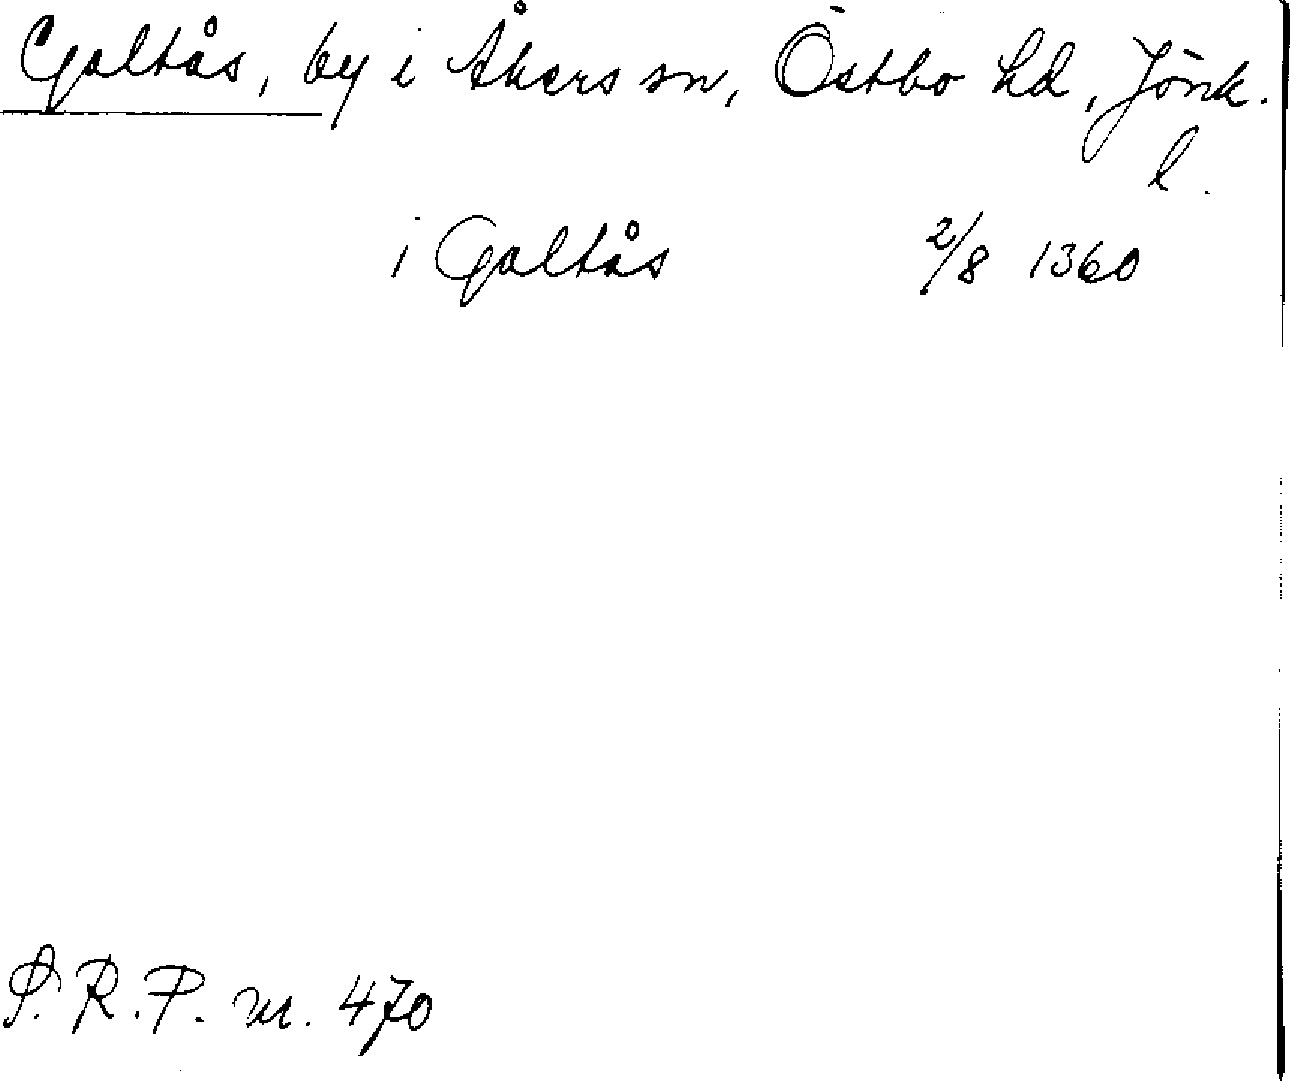 Galtås, by i Åkers sn, Östbo hd, Jönk.
l.
i Galtås 2/8 1360
S. R. P. nr. 470